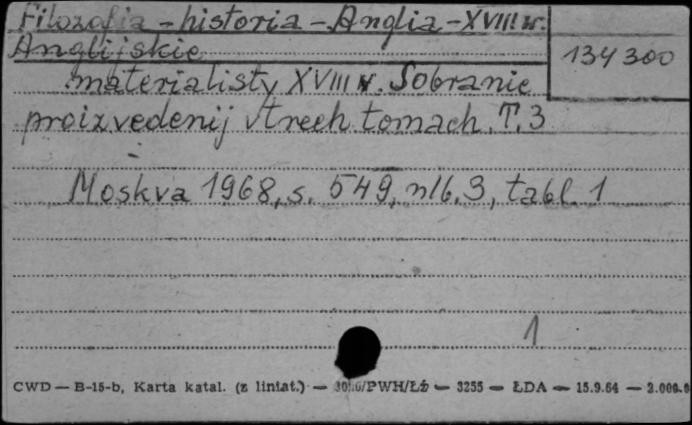 Filozofia - historia - Anglia - XVIII w.
134 300
Anglijskie
materialisty XVIII v. Sobranie
proizvedenij v trech tomach. T. 3
Moskva 1968, s. 549, nlb. 3, tabl. 1
1
CWD — B-15-b, Karta katal. (z liniat.) — /PWH/Łź — 3255 — ŁDA — 15.9.64 —